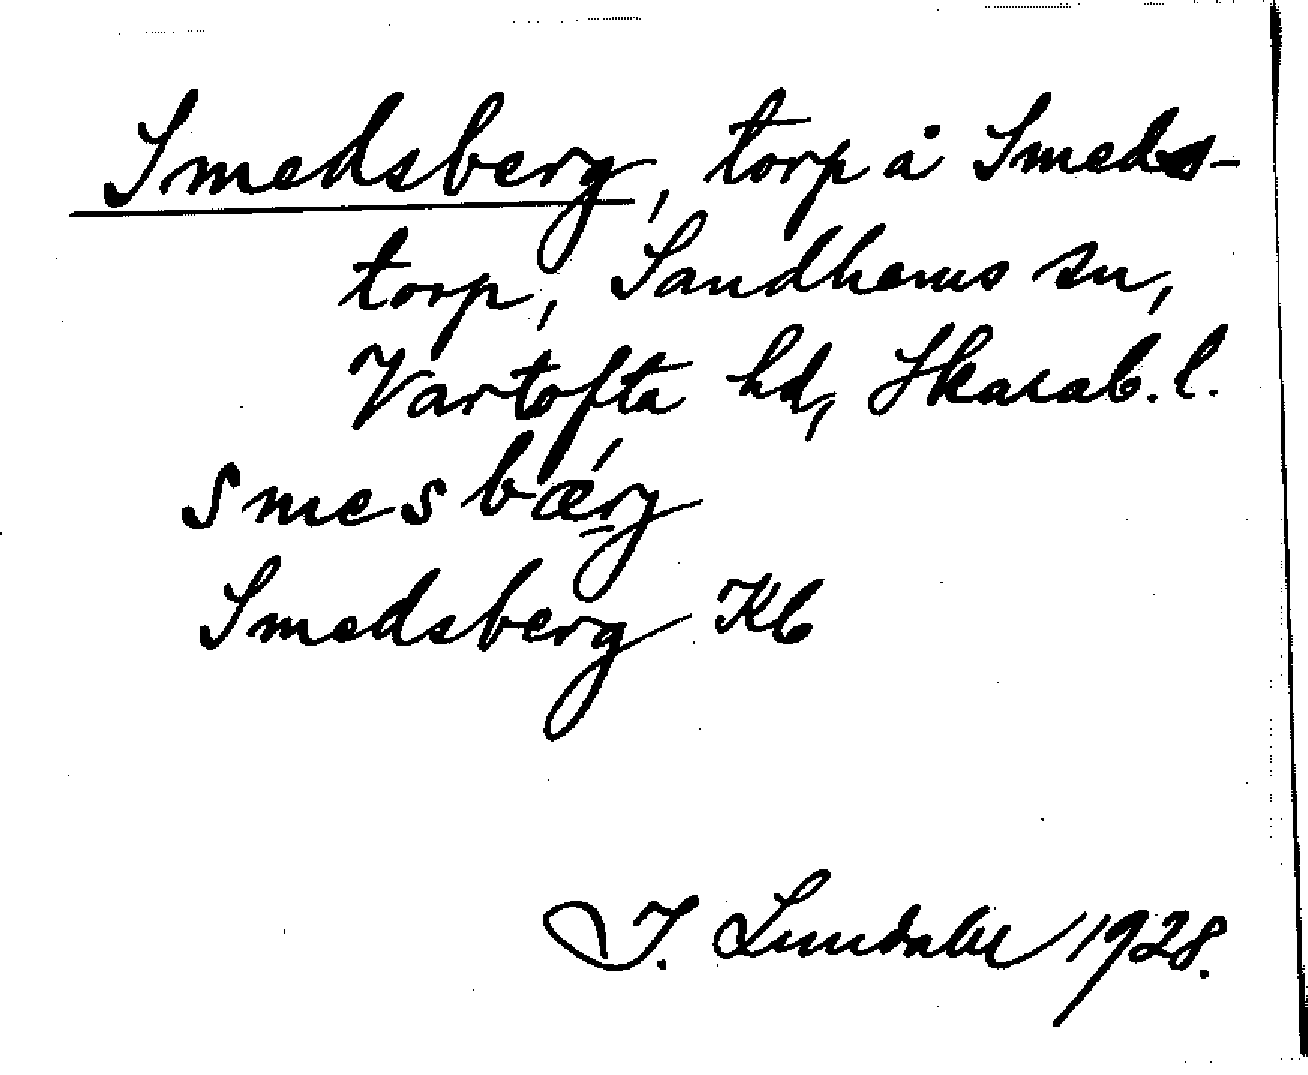 Smedsberg, torp å Smeds-
torp, Sandhems sn,
Vartofta hd, Skarab. l.
smesbærj
Smedsberg Kb
I. Lundahl 1928.